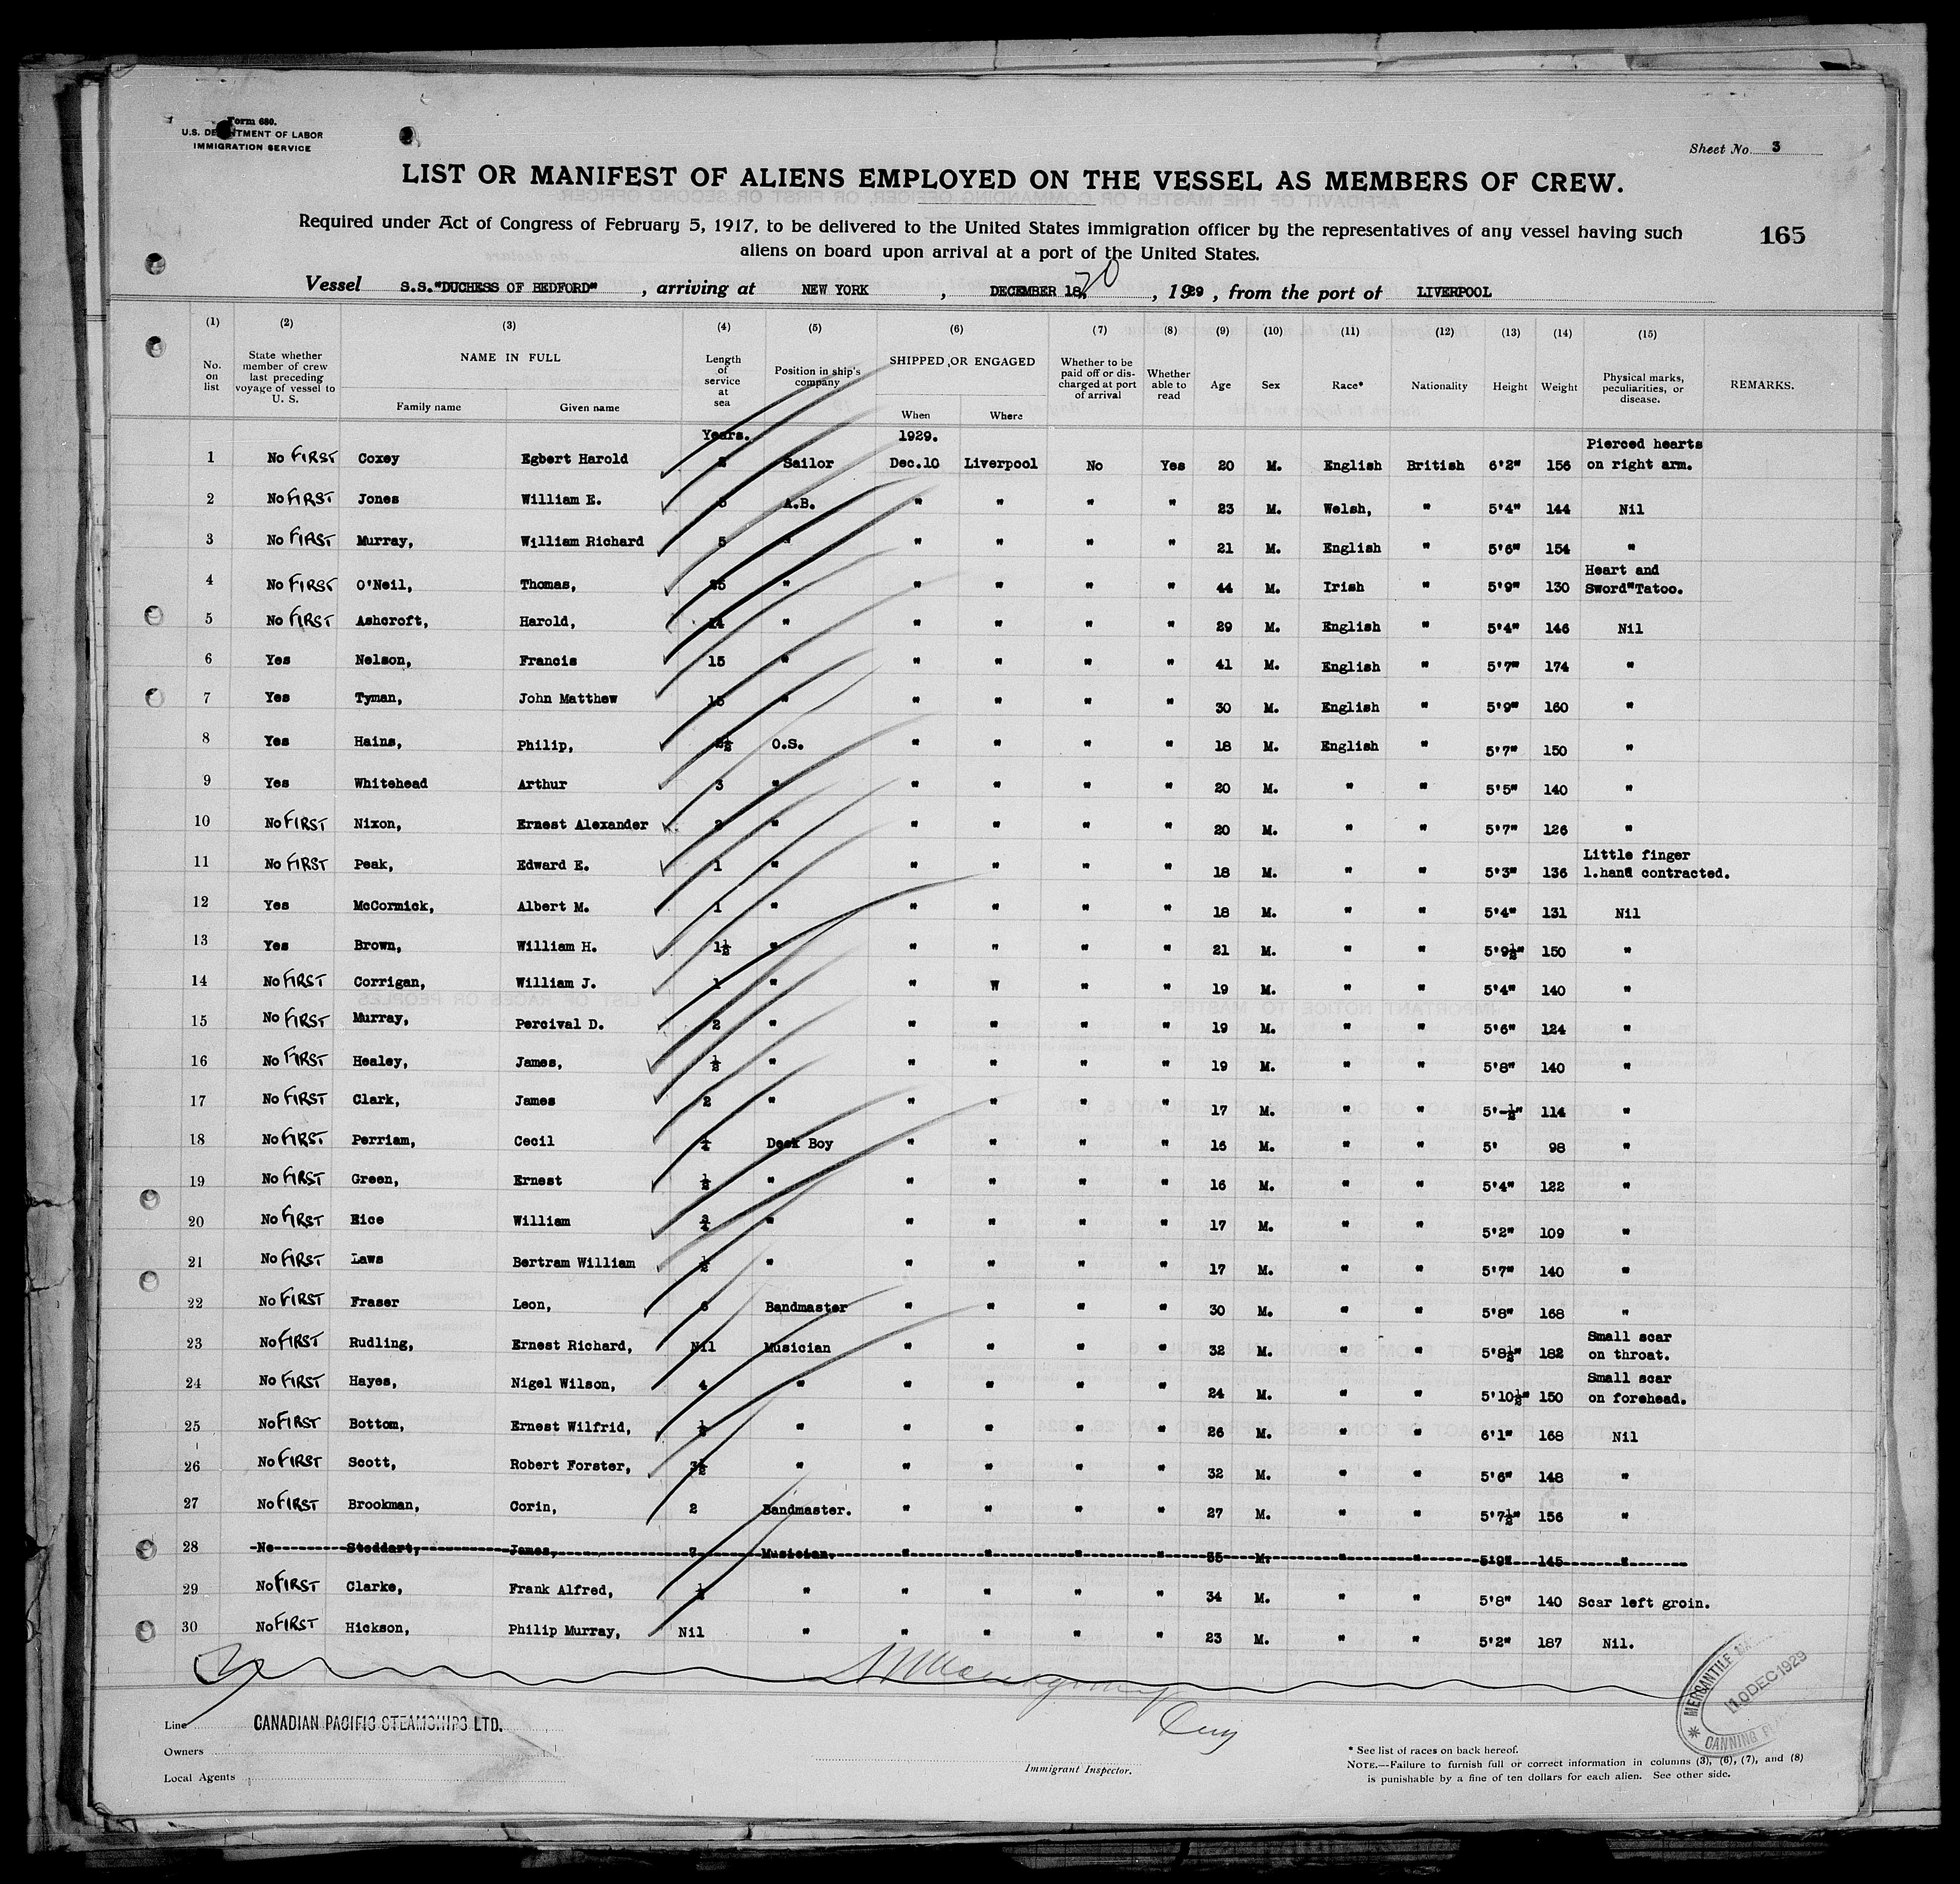 Form 680.
U.S. DEPARTMENT OF LABOR
IMMIGRATION SERVICE
Sheet No. 3
LIST OR MANIFEST OF ALIENS EMPLOYED ON THE VESSEL AS MEMBERS OF CREW.
Required under Act of Congress of February 5, 1917, to be delivered to the United States immigration officer by the representatives of any vessel having such
aliens on board upon arrival at a port of the United States.
165
Vessel S.S."DUCHESS OF BEDFORD", arriving at NEW YORK, DECEMBER 18, 20, 1929, from the port of LIVERPOOL
(1) (2) (3) (4) (5) (6) (7) (8) (9) (10) (11) (12) (13) (14) (15)
No. on list State whether member of crew last preceding voyage of vessel to U. S. NAME IN FULL Family name Given name Length of service at sea Position in ship's company SHIPPED OR ENGAGED When Where Whether to be paid off or discharged at port of arrival Whether able to read Age Sex Race* Nationality Height Weight Physical marks, peculiarities, or disease. REMARKS.
Years. 1929.
1 No FIRST Coxey Egbert Harold 2 Sailor Dec.10 Liverpool No Yes 20 M. English British 6'2" 156 Pierced hearts on right arm.
2 No FIRST Jones William E. A.B. " " " " 23 M. Welsh, " 5'4" 144 Nil
3 No FIRST Murray, William Richard 5 " " " " " 21 M. English " 5'6" 154 "
4 No FIRST O'Neil, Thomas, " " " " " 44 M. Irish " 5'9" 130 Heart and Sword"Tatoo.
5 No FIRST Ashcroft, Harold, 14 " " " " " 29 M. English " 5'4" 146 Nil
6 Yes Nelson, Francis 15 " " " " " 41 M. English " 5'7" 174 "
7 Yes Tyman, John Matthew 15 " " " " " 30 M. English " 5'9" 160 "
8 Yes Hains, Philip, O.S. " " " " 18 M. English " 5'7" 150 "
9 Yes Whitehead Arthur 3 " " " " " 20 M. " " 5'5" 140 "
10 No FIRST Nixon, Ernest Alexander 2 " " " " " 20 M. " " 5'7" 126 "
11 No FIRST Peak, Edward E. 1 " " " " " 18 M. " " 5'3" 136 Little finger l.hand contracted.
12 Yes McCormick, Albert M. 1 " " " " " 18 M. " " 5'4" 131 Nil
13 Yes Brown, William H. 1½ " " " " " 21 M. " " 5'9½" 150 "
14 No FIRST Corrigan, William J. 1 " " W " " 19 M. " " 5'4" 140 "
15 No FIRST Murray, Percival D. 2 " " " " " 19 M. " " 5'6" 124 "
16 No FIRST Healey, James, ½ " " " " " 19 M. " " 5'8" 140 "
17 No FIRST Clark, James 2 " " " " " 17 M. " " 5'-½" 114 "
18 No FIRST Perriam, Cecil Deck Boy " " " " 16 M. " " 5' 98 "
19 No FIRST Green, Ernest ½ " " " " " 16 M. " " 5'4" 122 "
20 No FIRST Rice William ¾ " " " " " 17 M. " " 5'2" 109 "
21 No FIRST Laws Bertram William ½ " " " " " 17 M. " " 5'7" 140 "
22 No FIRST Fraser Leon, 6 Bandmaster " " " " 30 M. " " 5'8" 168 "
23 No FIRST Rudling, Ernest Richard, Nil Musician " " " " 32 M. " " 5'8½" 182 Small scar on throat.
24 No FIRST Hayes, Nigel Wilson, 4 " " " " " 24 M. " " 5'10½" 150 Small scar on forehead.
25 No FIRST Bottom, Ernest Wilfrid, ½ " " " " " 26 M. " " 6'1" 168 Nil
26 No FIRST Scott, Robert Forster, 3½ " " " " " 32 M. " " 5'6" 148 "
27 No FIRST Brookman, Corin, 2 Bandmaster. " " " " 27 M. " " 5'7½" 156 "
28 No Stoddart, James, 7 Musician. " " " " 35 M. " " 5'9" 145 "
29 No FIRST Clarke, Frank Alfred, " " " " " 34 M. " " 5'8" 140 Scar left groin.
30 No FIRST Hickson, Philip Murray, Nil " " " " " 23 M. " " 5'2" 187 Nil.
Line CANADIAN PACIFIC STEAMSHIPS LTD.
Owners
Local Agents
Immigrant Inspector.
MERCANTILE
10 DEC 1929
CANNING
* See list of races on back hereof.
NOTE.—Failure to furnish full or correct information in columns (3), (6), (7), and (8)
is punishable by a fine of ten dollars for each alien. See other side.